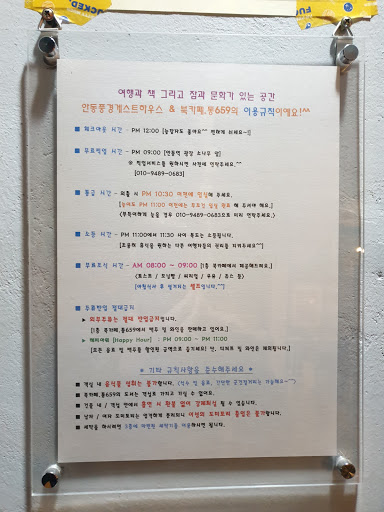 여행과 책 그리고 쉼과 문화가 있는 공간
안동풍경게스트하우스 & 북카페,통659의 이용규칙이에요!^^
■ 체크아웃 시간 - PM 12:00 [늦잠자도 좋아요^^ 편하게 쉬세요~!]
■ 무료픽업 시간 - PM 09:00 [안동역 광장 소나무 앞]
※ 픽업서비스를 원하시면 사전에 연락주세요.^^
[010-9489-0683]
■ 통금 시간 - 외출 시 PM 10:30 이전에 입실해 주세요.
[늦어도 PM 11:00 이전에는 무조건 입실 완료 해 주셔야 해요.]
(부득이하게 늦을 경우 010-9489-0683으로 미리 연락주세요.)
■ 소등 시간 - PM 11:00에서 11:30 사이 복도는 소등됩니다.
[조용히 휴식을 원하는 다른 여행자들의 권리를 지켜주세요^^]
■ 무료조식 시간 - AM 08:00 ~ 09:00 [1층 북카페에서 제공해드려요.]
(토스트 / 모닝빵 / 씨리얼 / 우유 / 쥬스 등)
[아침식사 후 설거지는 셀프입니다.^^]
■ 주류반입 절대금지
▶ 외부주류는 절대 반입금지입니다.
[1층 북카페,통659에서 맥주 및 와인을 판매하고 있어요.]
▶ 해피아워 [Happy Hour] : PM 09:00 ~ PM 11:00
[모든 음료 및 맥주를 할인된 금액으로 즐기세요! 단, 디저트 및 와인은 제외됩니다.]
* 기타 규칙사항을 준수해주세요 *
■ 객실 내 음식물 섭취는 불가합니다. (식수 및 음료, 간단한 군것질거리는 가능해요~^^)
■ 북카페,통659의 도서는 객실로 가지고 가실 수 없어요.
■ 건물 내 / 객실 안에서 흡연 시 환불 없이 강제퇴실 될 수 있습니다.
■ 남자 / 여자 도미토리는 엄격하게 분리되니 이성의 도미토리 출입은 불가합니다.
■ 세탁을 하시려면 3층에 마련된 세탁기를 이용하시면 됩니다.